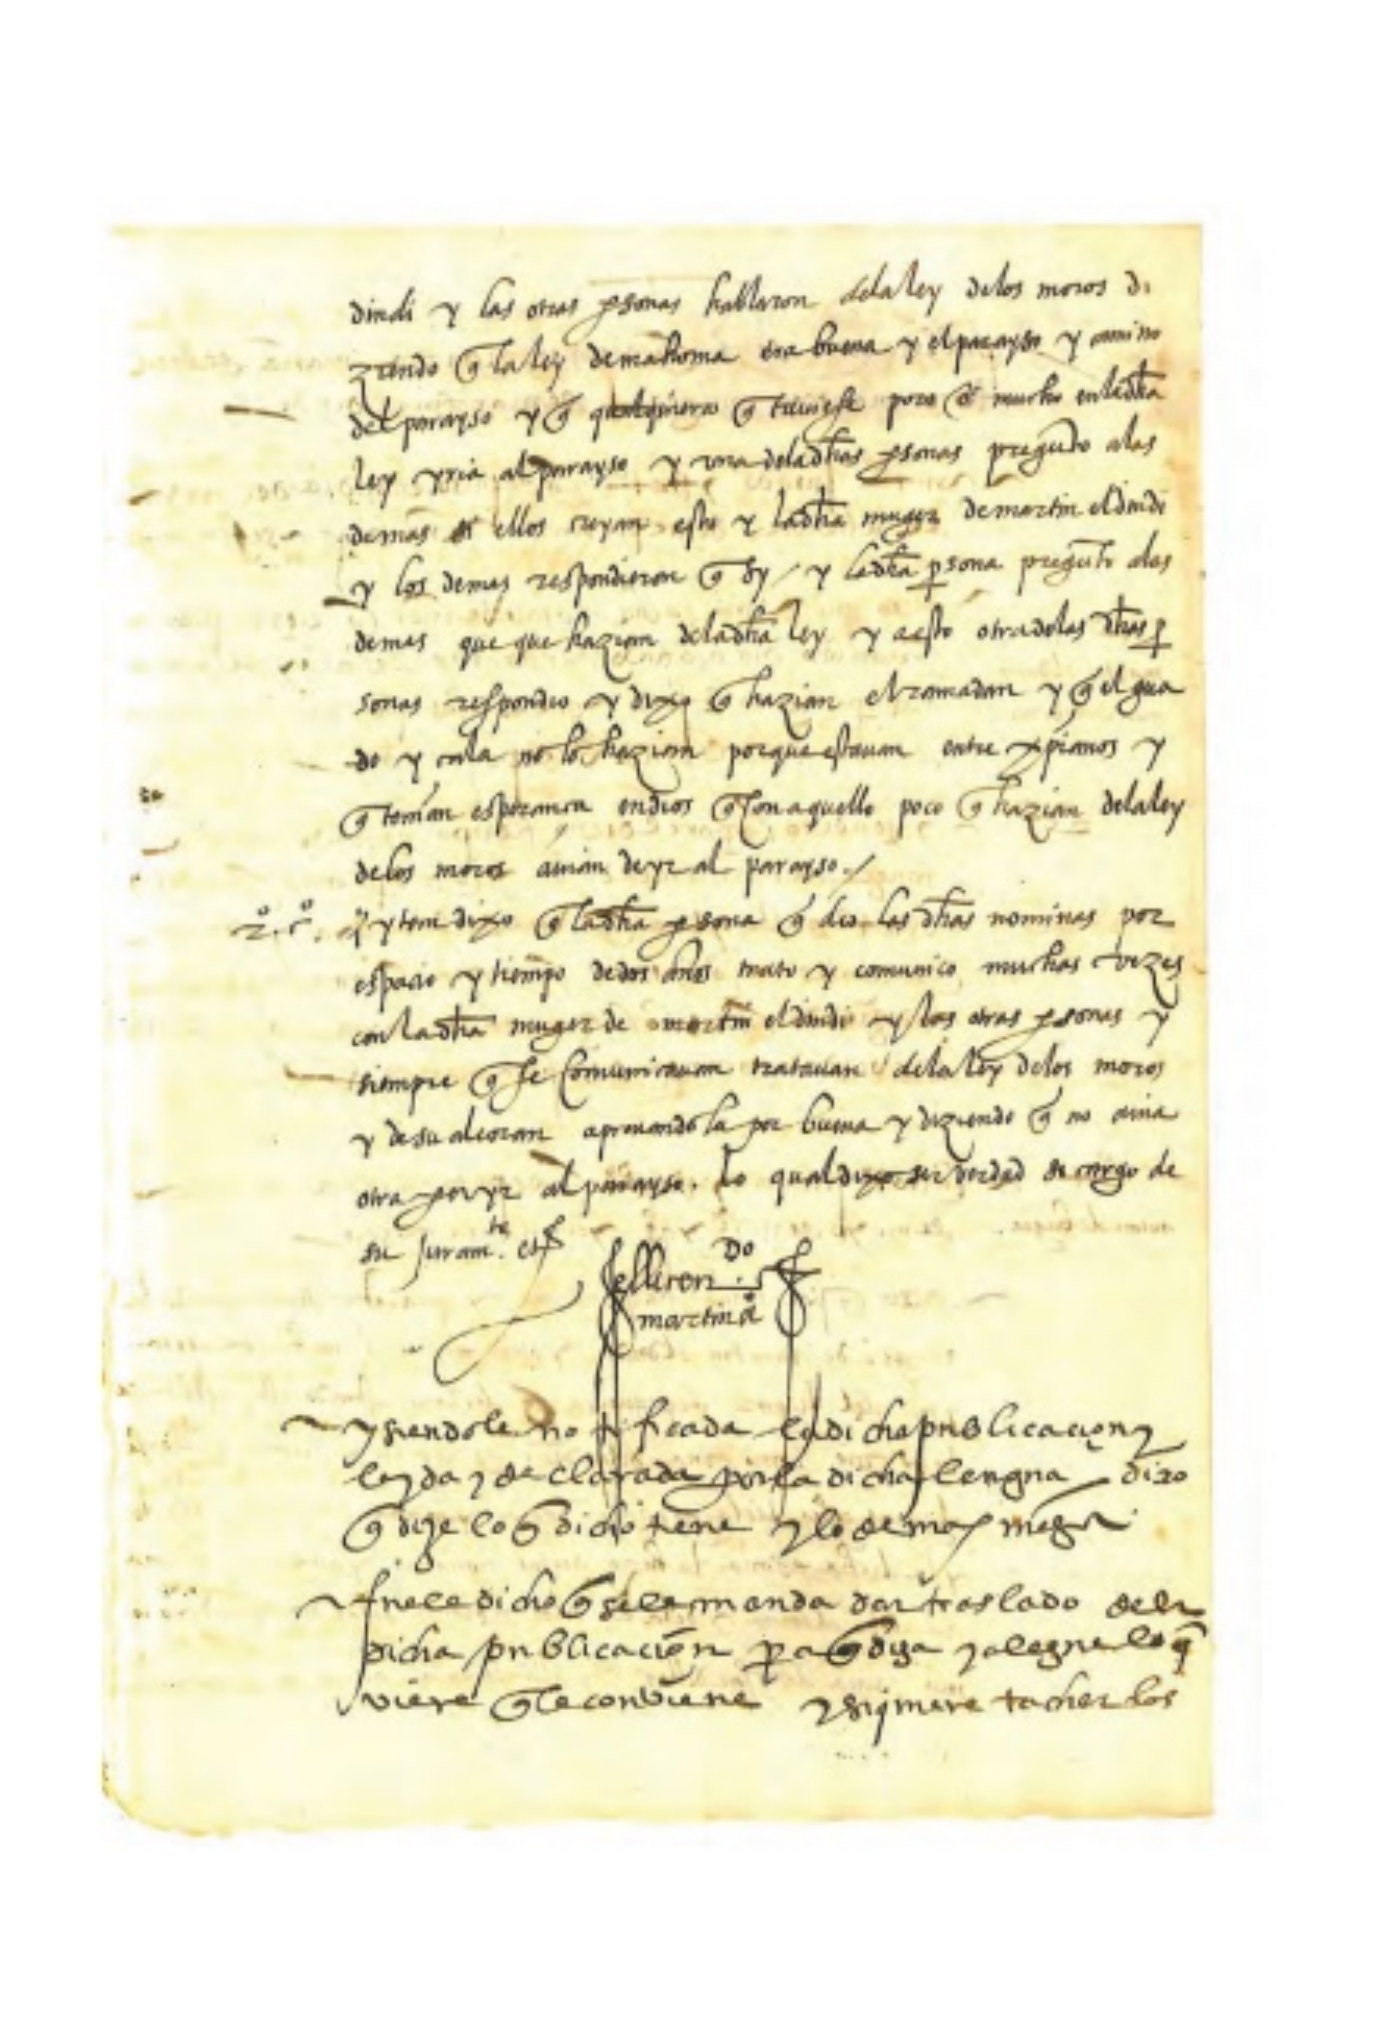 dindi y las otras psonas hablaron dela ley delos moros di
ziendo q̃ la ley de mahoma era buena y el parayso y camino
del parayso y q̃ qualquiera q̃ tuuiese poco o mucho en la dha
ley yria al parayso y vna de las dhas psonas pregũto alas
demas si ellos creyan esto y la dha muger de martin el dindi
y los demas respondieron q̃ sy / y la dha psona pregũto alas
demas que que hazian de la dha ley y a esto otra delas dhas p
sonas respondio y dixo q̃ hazian el ramadan y q̃ el gua
do y cala no lo hazian porque estauan entre xp̃ianos y
q̃ tenian esperanca en dios q̃ con aquello poco q̃ hazian dela ley
delos moros auian de yr al parayso . /
2º. cº. yten dixo q̃ la dha psona q̃ dio las dhas nominas por
espacio y tiempo de dos años trato y comunico muchas vezes
con la dha muger de martin el dindi y las otras psonas y
siempre q̃ se comunicauan tratauan dela ley delos moros
y de su alcoran aprouandola por buena y diziendo q̃ no auia
otra para yr al parayso. Lo qual dixo ser verdad so cargo de
su juramte.
el licendo
martin
y siendole notificada la dicha publicacion y
leyda y declarada por la dicha lengua dixo
q̃ dize lo q̃ dicho tiene y lo demas niega
fuele dicho q̃ se le manda dar traslado dela
dicha publicaciõn pa q̃ diga y alegue lo q̃
viere q̃ le conviene y si quiere tachar los